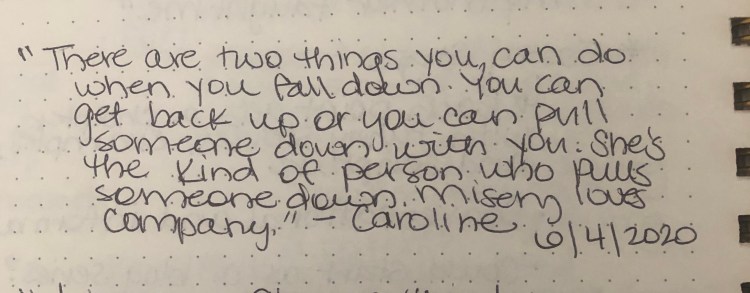 "There are two things you can do
when you fall down. You can
get back up or you can pull
someone down with you. She's
the kind of person who pulls
someone down. Misery loves
company." - Caroline
6/4/2020